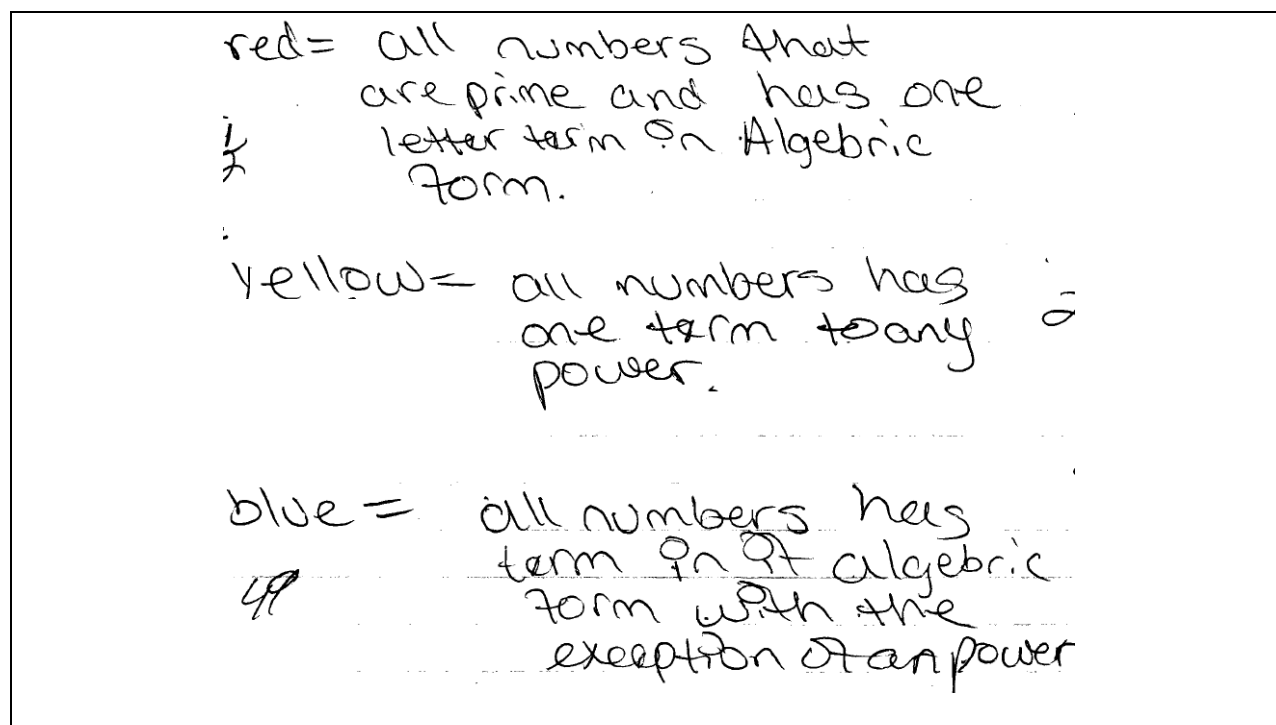 red= all numbers that
are prime and has one
letter term in Algebric
form.
yellow= all numbers has
one term to any
power.
blue= all numbers has
term in it algebric
form with the
exception of an power